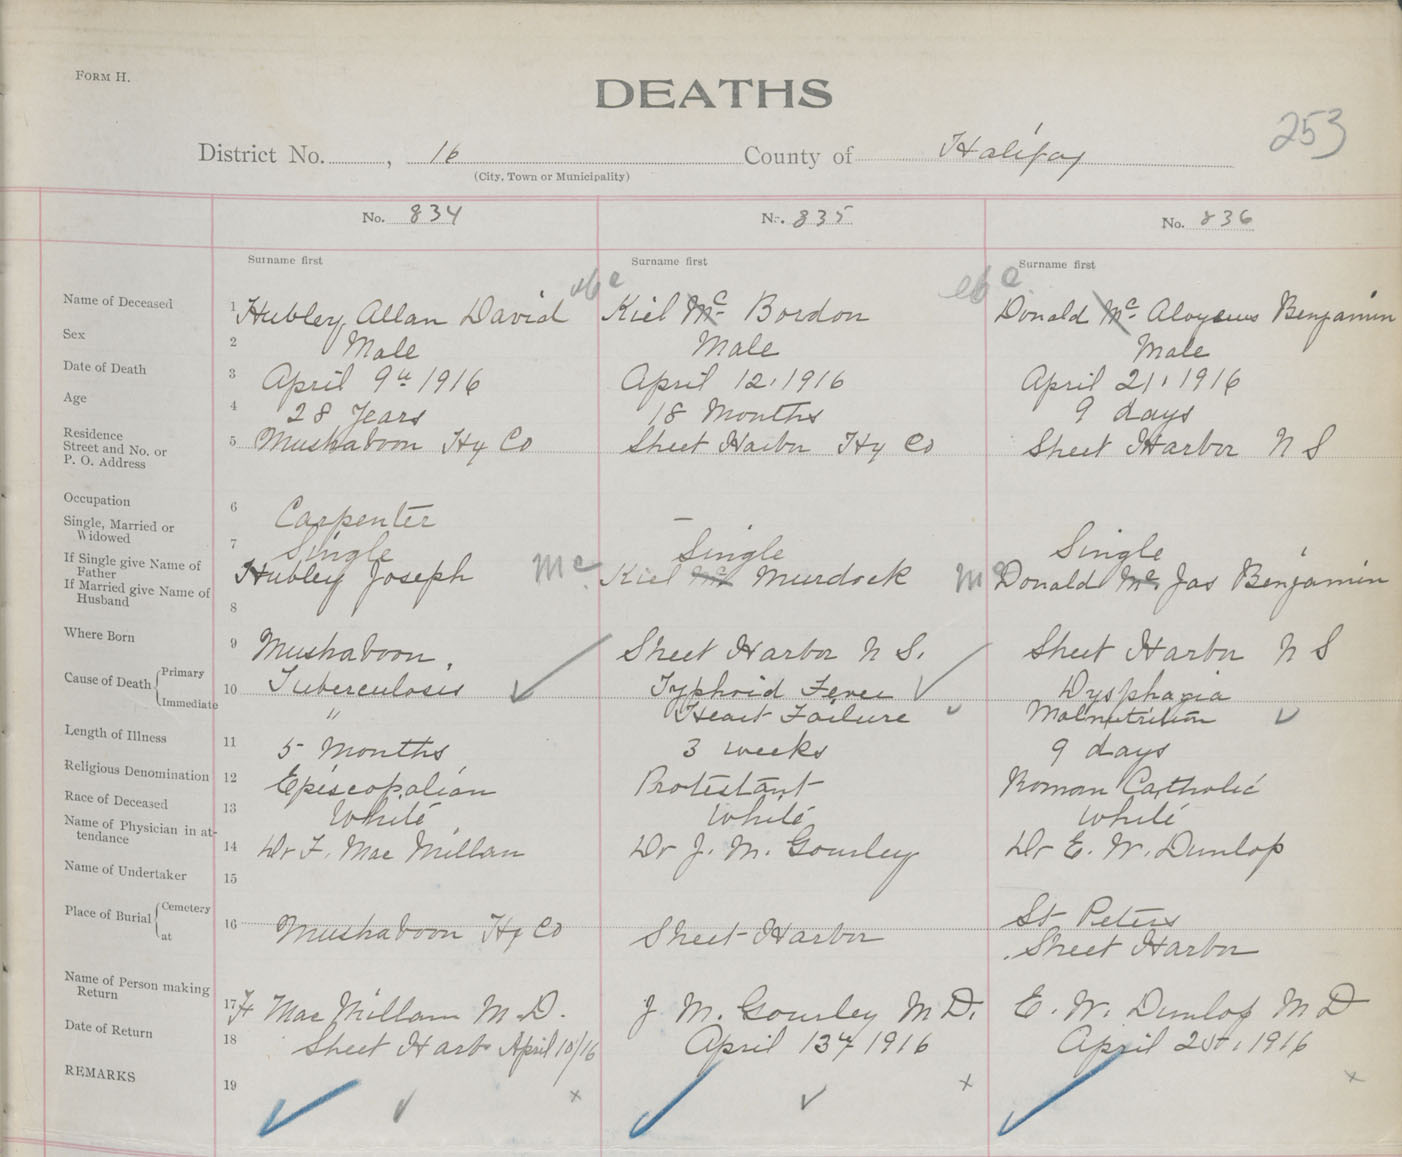 FORM H.
DEATHS
253
District No. , 16 County of Halifax
(City, Town or Municipality)
No. 834 No. 835 No. 836
Surname first Surname first Surname first
Name of Deceased 1 Hubley, Allan David Kiel Mc Bordon Donald Mc Aloysius Benjamin
Sex 2 Male Male Male
Date of Death 3 April 9th 1916 April 12, 1916 April 21, 1916
Age 4 28 Years 18 Months 9 days
Residence
Street and No. or
P. O. Address 5 Mushaboon Hx Co Sheet Harbor Hx Co Sheet Harbor N S
Occupation 6 Carpenter –
Single, Married or
Widowed 7 Single Single Single
If Single give Name of
Father Hubley Joseph Mc Kiel Mc Murdock Mc Donald Mc Jas Benjamin
If Married give Name of
Husband 8
Where Born 9 Mushaboon, Sheet Harbor N S. Sheet Harbor N S
Cause of Death { Primary 10 Tuberculosis Typhoid Fever Dysphagia
Immediate " Heart Failure Malnutrition
Length of Illness 11 5 Months 3 weeks 9 days
Religious Denomination 12 Episcopalian Protestant Roman Catholic
Race of Deceased 13 White White White
Name of Physician in at-
tendance 14 Dr F. Mac Millan Dr J. M. Gourley Dr E. W. Dunlop
Name of Undertaker 15
Place of Burial { Cemetery St Peters
at 16 Mushaboon Hx Co Sheet Harbor Sheet Harbor
Name of Person making
Return 17 F Mac Millan M.D. J M. Gourley M D. E. W. Dunlop M D
Date of Return 18 Sheet Harb April 10/16 April 13th 1916 April 21st, 1916
REMARKS 19